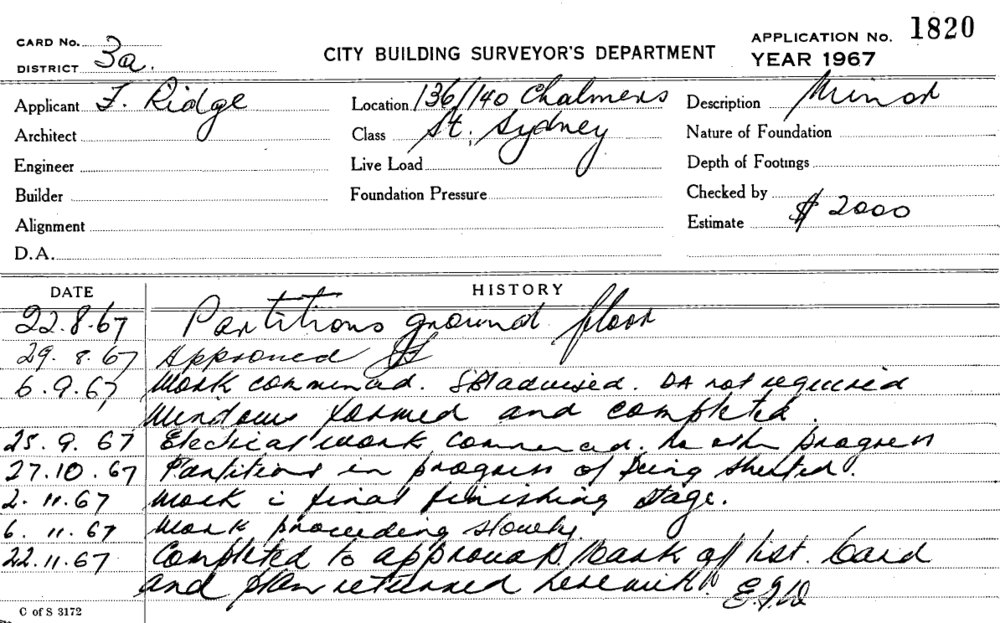 CARD No. 3a.
DISTRICT
CITY BUILDING SURVEYOR'S DEPARTMENT
APPLICATION No. 1820
YEAR 1967
Applicant F. Ridge
Location 136/140 Chalmers
Description Minor
Architect
Class St, Sydney
Nature of Foundation
Engineer
Live Load
Depth of Footings
Builder
Foundation Pressure
Checked by
Alignment
Estimate $ 2000
D.A.
DATE HISTORY
22.8.67 Partitions ground floor
29.8.67 Approved
6.9.67 Work commenced. advised. DA not required
Windows formed and completed.
25.9.67 Electrical work commenced. No other progress
27.10.67 Partitions in progress of being sheeted.
2.11.67 Work i final finishing stage.
6.11.67 Work proceeding slowly.
22.11.67 Completed to approval. Mark off list. Card
and plan returned herewith.
C of S 3172